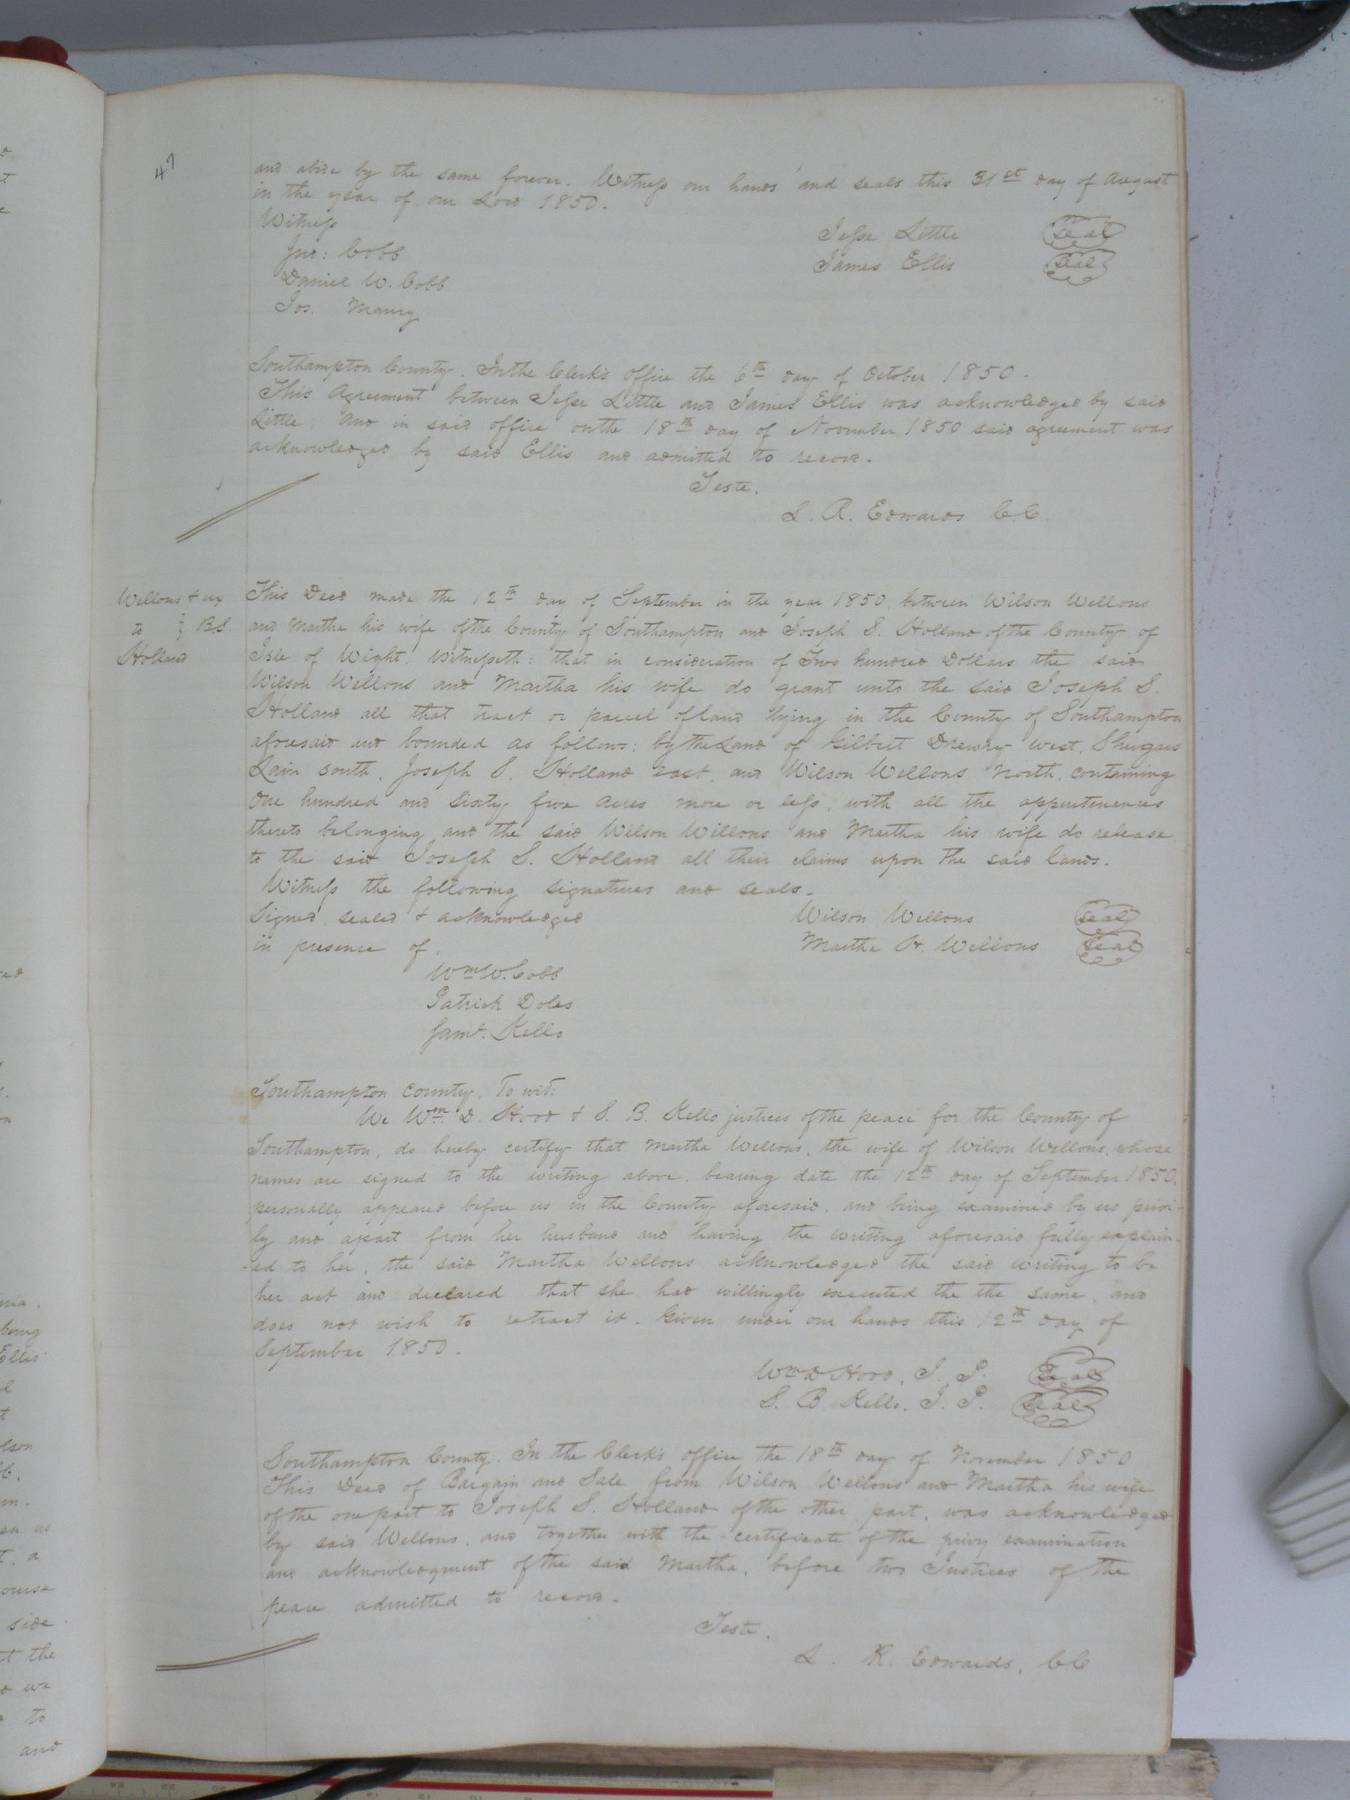 47
and abide by the same forever. Witness our hands and seals this 31st day of August
in the year of our Lord 1850.
Witness
Jesse Little seal
Jno: Cobb
James Ellis seal
Daniel W. Cobb
Jos. Maury
Southampton County. In the Clerk's office the 6th day of October 1850.
This Agreement between Jesse Little and James Ellis was acknowledged by said
Little; And in said office on the 18th day of November 1850 said agreement was
acknowledged by said Ellis and admitted to record.
Teste.
L. R. Edwards C.C.
Wellons & ux
to } B.S.
Holland
This Deed made the 12th day of September in the year 1850 between Wilson Wellons
and Martha his wife of the County of Southampton and Joseph S. Holland of the County of
Isle of Wight. Witnesseth: that in consideration of Two hundred Dollars the said
Wilson Wellons and Martha his wife do grant unto the said Joseph S.
Holland all that tract or parcel of land lying in the County of Southampton
aforesaid and bounded as follows: by the Land of Gilbert Drewry west,
Lain south, Joseph S. Holland east, and Wilson Wellons North, containing
One hundred and Sixty five acres more or less, with all the appurtenances
thereto belonging, and the said Wilson Wellons and Martha his wife do release
to the said Joseph S. Holland all their claims upon the said lands.
Witness the following signatures and seals.
Signed, sealed & acknowledged
Wilson Wellons seal
in presence of.
Martha H. Wellons seal
Wm W. Cobb
Patrick Doles
Kello
Southampton County, To wit:
We Wm. D. Hood & S. B. Kello justices of the peace for the County of
Southampton, do hereby certify that Martha Wellons, the wife of Wilson Wellons, whose
names are signed to the writing above, bearing date the 12th day of September 1850,
personally appeared before us in the County aforesaid, and being examined by us privi-
ly and apart from her husband and having the writing aforesaid fully explain-
-ed to her, the said Martha Wellons acknowledged the said writing to be
her act and declared that she had willingly executed the the same, and
does not wish to retract it. Given under our hands this 12th day of
September 1850.
Wm D Hood, J. P. Seal
S. B Kello, J. P. Seal
Southampton County. In the Clerk's office the 18th day of November 1850
This Deed of Bargain and Sale from Wilson Wellons and Martha his wife
of the one part to Joseph S. Holland of the other part, was acknowledged
by said Wellons, and together with the certificate of the privy examination
and acknowledgment of the said Martha, before two Justices of the
peace admitted to record.
Teste.
L. R. Edwards, C.C